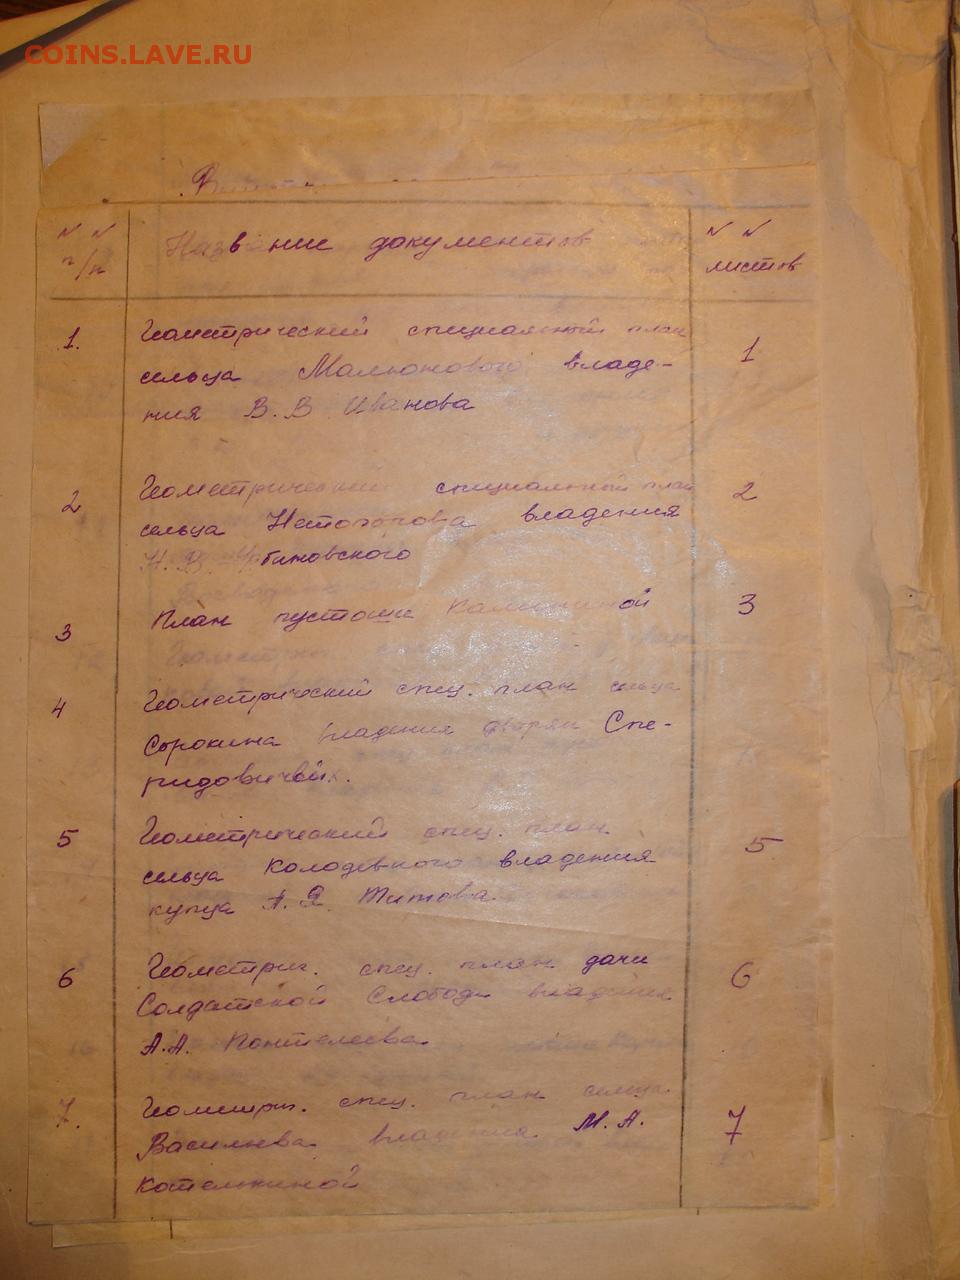 COINS.LAVE.RU
№ № п/п Название документов № № листов
1. Геометрический специальный план 1
сельца Малюкового владе-
ния В.В. Иванова
2 Геометрический специальный план 2
сельца владения
Н.В.
3 План пустоши Калининой 3
4 Геометрический спец. план сельца
Сорокина владения дворян Спе-
ридовичей.
5 Геометрический спец. план 5
сельца Колодезного владения
купца А.Я. Титова
6 Геометрич. спец. план дачи 6
Солдатской Слободы владения
А.А. Понтелеева
7. Геометрич. спец. план сельца 7
Васильева владения М.А.
Котельниной